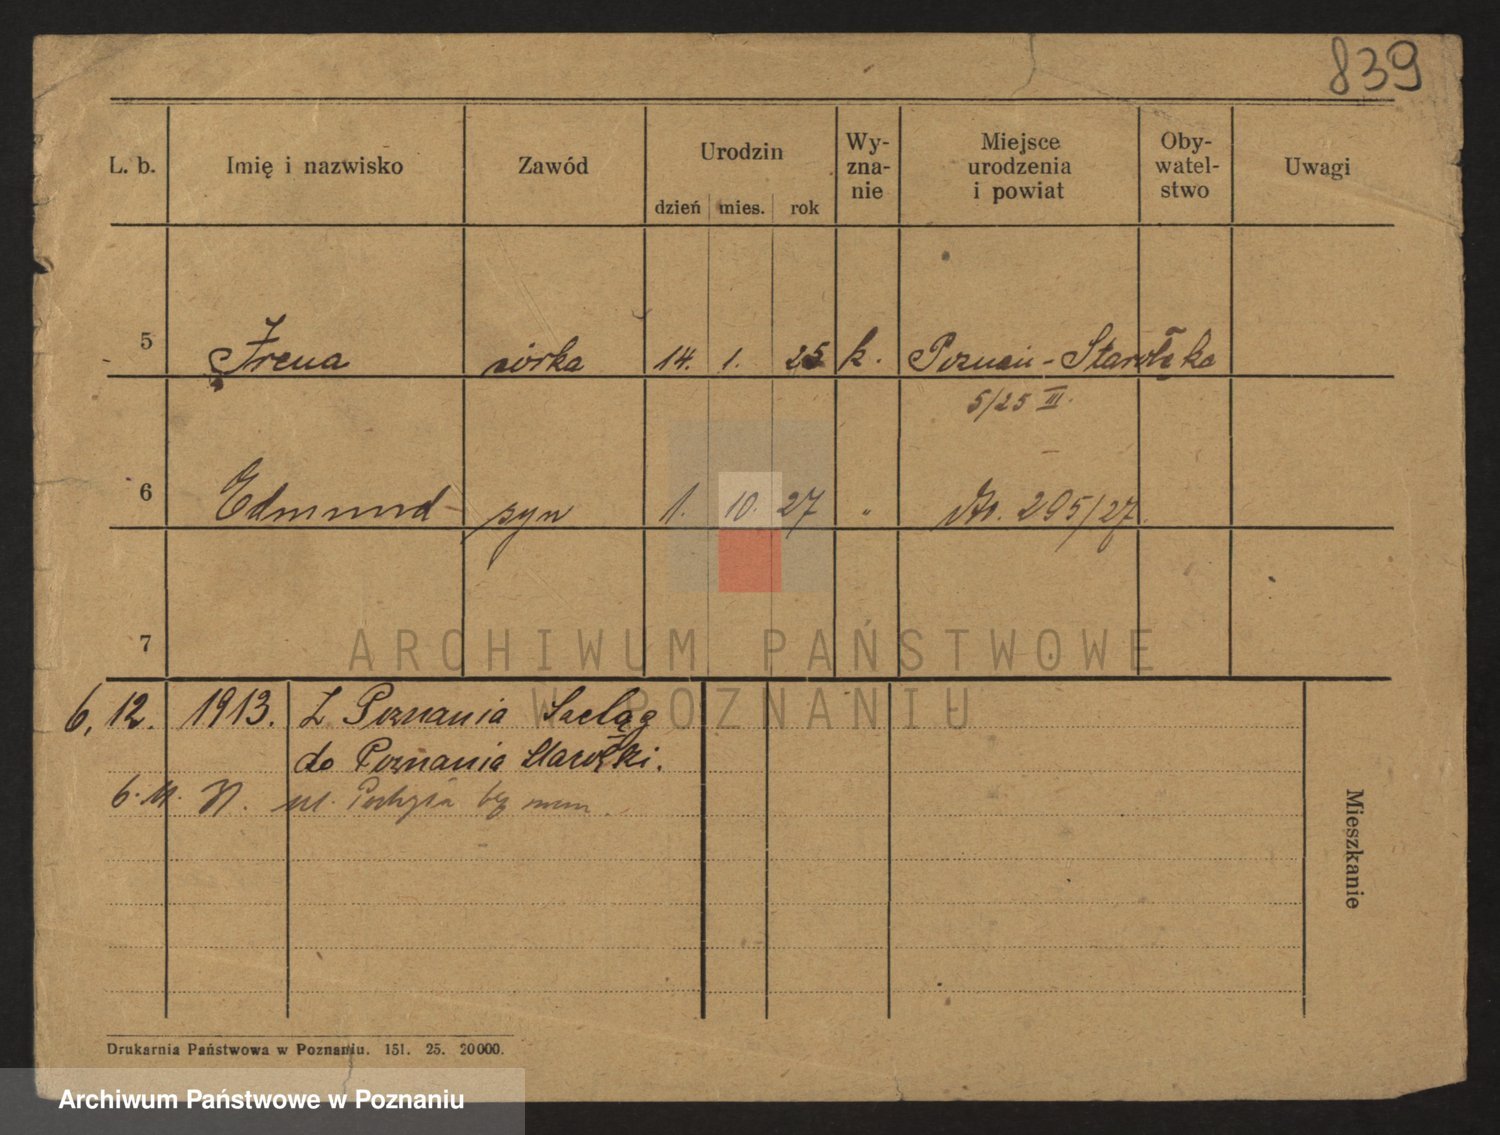 839
L. b. Imię i nazwisko Zawód Urodzin Wy-
zna-
nie Miejsce
urodzenia
i powiat Oby-
watel-
stwo Uwagi
dzień mies. rok
5 Irena córka 14. 1. 25 k. Poznań-Starołęka
5/25 III.
6 Edmund syn 1. 10. 27 " No. 295/27
7
ARCHIWUM PAŃSTWOWE
W POZNANIU
6, 12. 1913. Z Poznania
do Poznania Starołęki.
6. 11. ul. bez num.
Mieszkanie
Drukarnia Państwowa w Poznaniu. 151. 25. 20000.
Archiwum Państwowe w Poznaniu